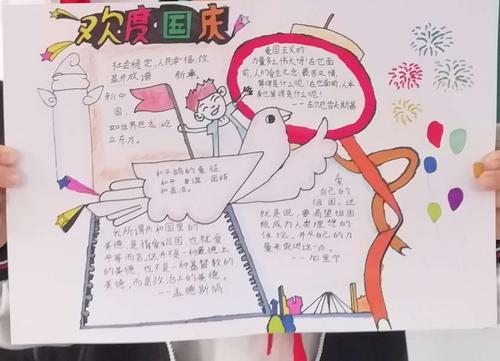 欢度国庆
社会稳定,人民幸福,改
革开放谱 新章
新中
国,
如世界巨龙,屹
立东方。
爱国主义的
力量多么伟大呀!在它面
前,人的爱生之念,畏苦之情,
算得是什么呢!在它面前,人本
身也算得是什么呢!
——车尔尼雪夫斯基
和平鸽的象征
和平 友谊 团结
和圣洁。
我所谓共和国里的
美德,是指爱祖国也就是爱
平等而言,这并不是一种道德上
的美德,也不是一种基督教的
美德,而是政治上的美德。
——孟德斯鸠
爱
自己的
祖国。这
就是说,要渴望祖国
能成为人类理想的
体现,并尽自己的力
量来促进这一点。
——加里宁